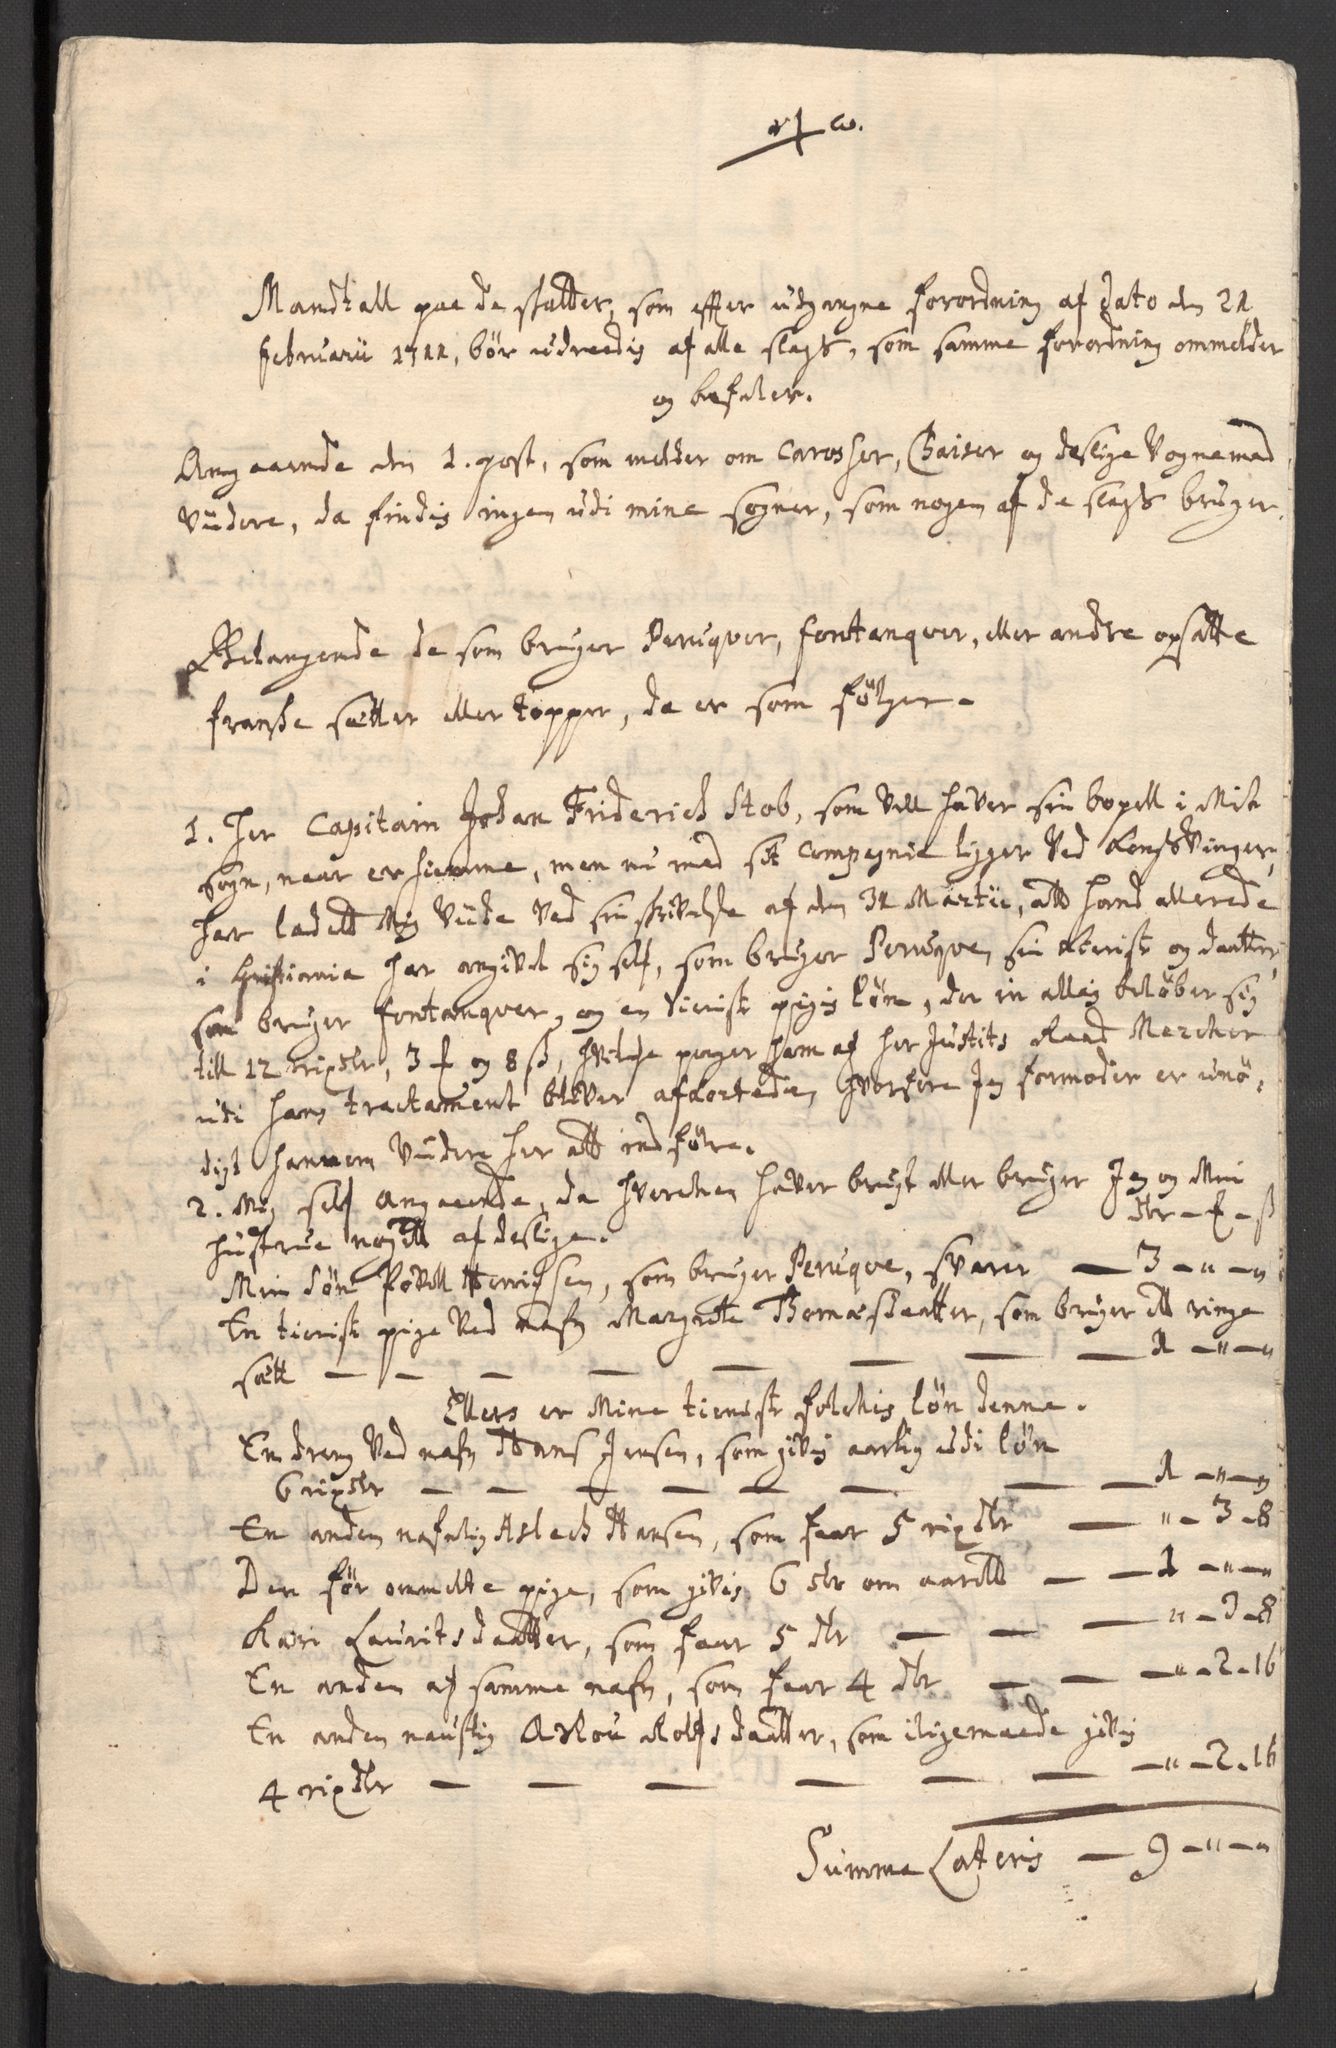 Mandtall paa de skatter, som effter udgangne forordning af dato den 21
februarii 1711, bör udreedis af alle slags, som samme forordning ommelder
og befaler.
Angaaende den 1. post, som melder om Carosser, Chaiser og deslige Vogne med
viidere, da findis ingen udi mine sogner, som nogen af de slags bruger.
Belangende de som bruger Peruqver, fontanqver, eller andre opsatte
franske sætter eller topper, da er som fölger.
1. Her Capitain Johan Friderich Stob, som vell haver sin bopell i Mit
sogn, naar er hiemme, men nu med sit Compagnie ligger ved Kongsvinger,
har ladett Mig viide ved sin skrivelse af den 31 Martii, att hand allerede
i Christiania har angivet sig self, som bruger Peruqve, sin kierist og daatter,
som bruger fontanqver, og en tienist pigis lön, der in alles belöber sig
till 12 rixdlr, 3 f og 8 ß, hvilche penger ham af her Justits Raad Mercker
udi hans tractament bliver afkortede, hvorfore Jeg formoder er unö-
digt hannem viidere her att indföre.
2. Mig self angaaende, da hverchen haver brugt eller bruger Jeg og Min
hustrue nogett af deslige. dlr - f - ß
Min Sön Povell Henrichsen, som bruger Peruqve, svarer — 3 - " - "
En tienist pige ved nafn Margrette Thomasdaatter, som bruger ett ringe
sætt — — — — — — — 1 - " - "
Ellers er Mine tienist folchis lön denne.
En dreng ved nafn Hans Jensen, som givis aarlig udi lön
6 rixdlr — — — — — — — — 1 - " - "
En anden nafnlig Aslech Hansen, som faar 5 rixdlr — " - 3 - 8
Den för ommelte pige, som givis 6 dlr om aarett — — 1 - " - "
Kari Lauritsdaatter, som faar 5 dlr — — — " - 3 - 8
En anden af samme nafn, som faar 4 dlr — — — " - 2 - 16
En anden naunlig Aslou Rolfsdaatter, som iligemaade givis
4 rixdlr — — — — — — — " - 2 - 16
Summa Lateris — 9 - " - "